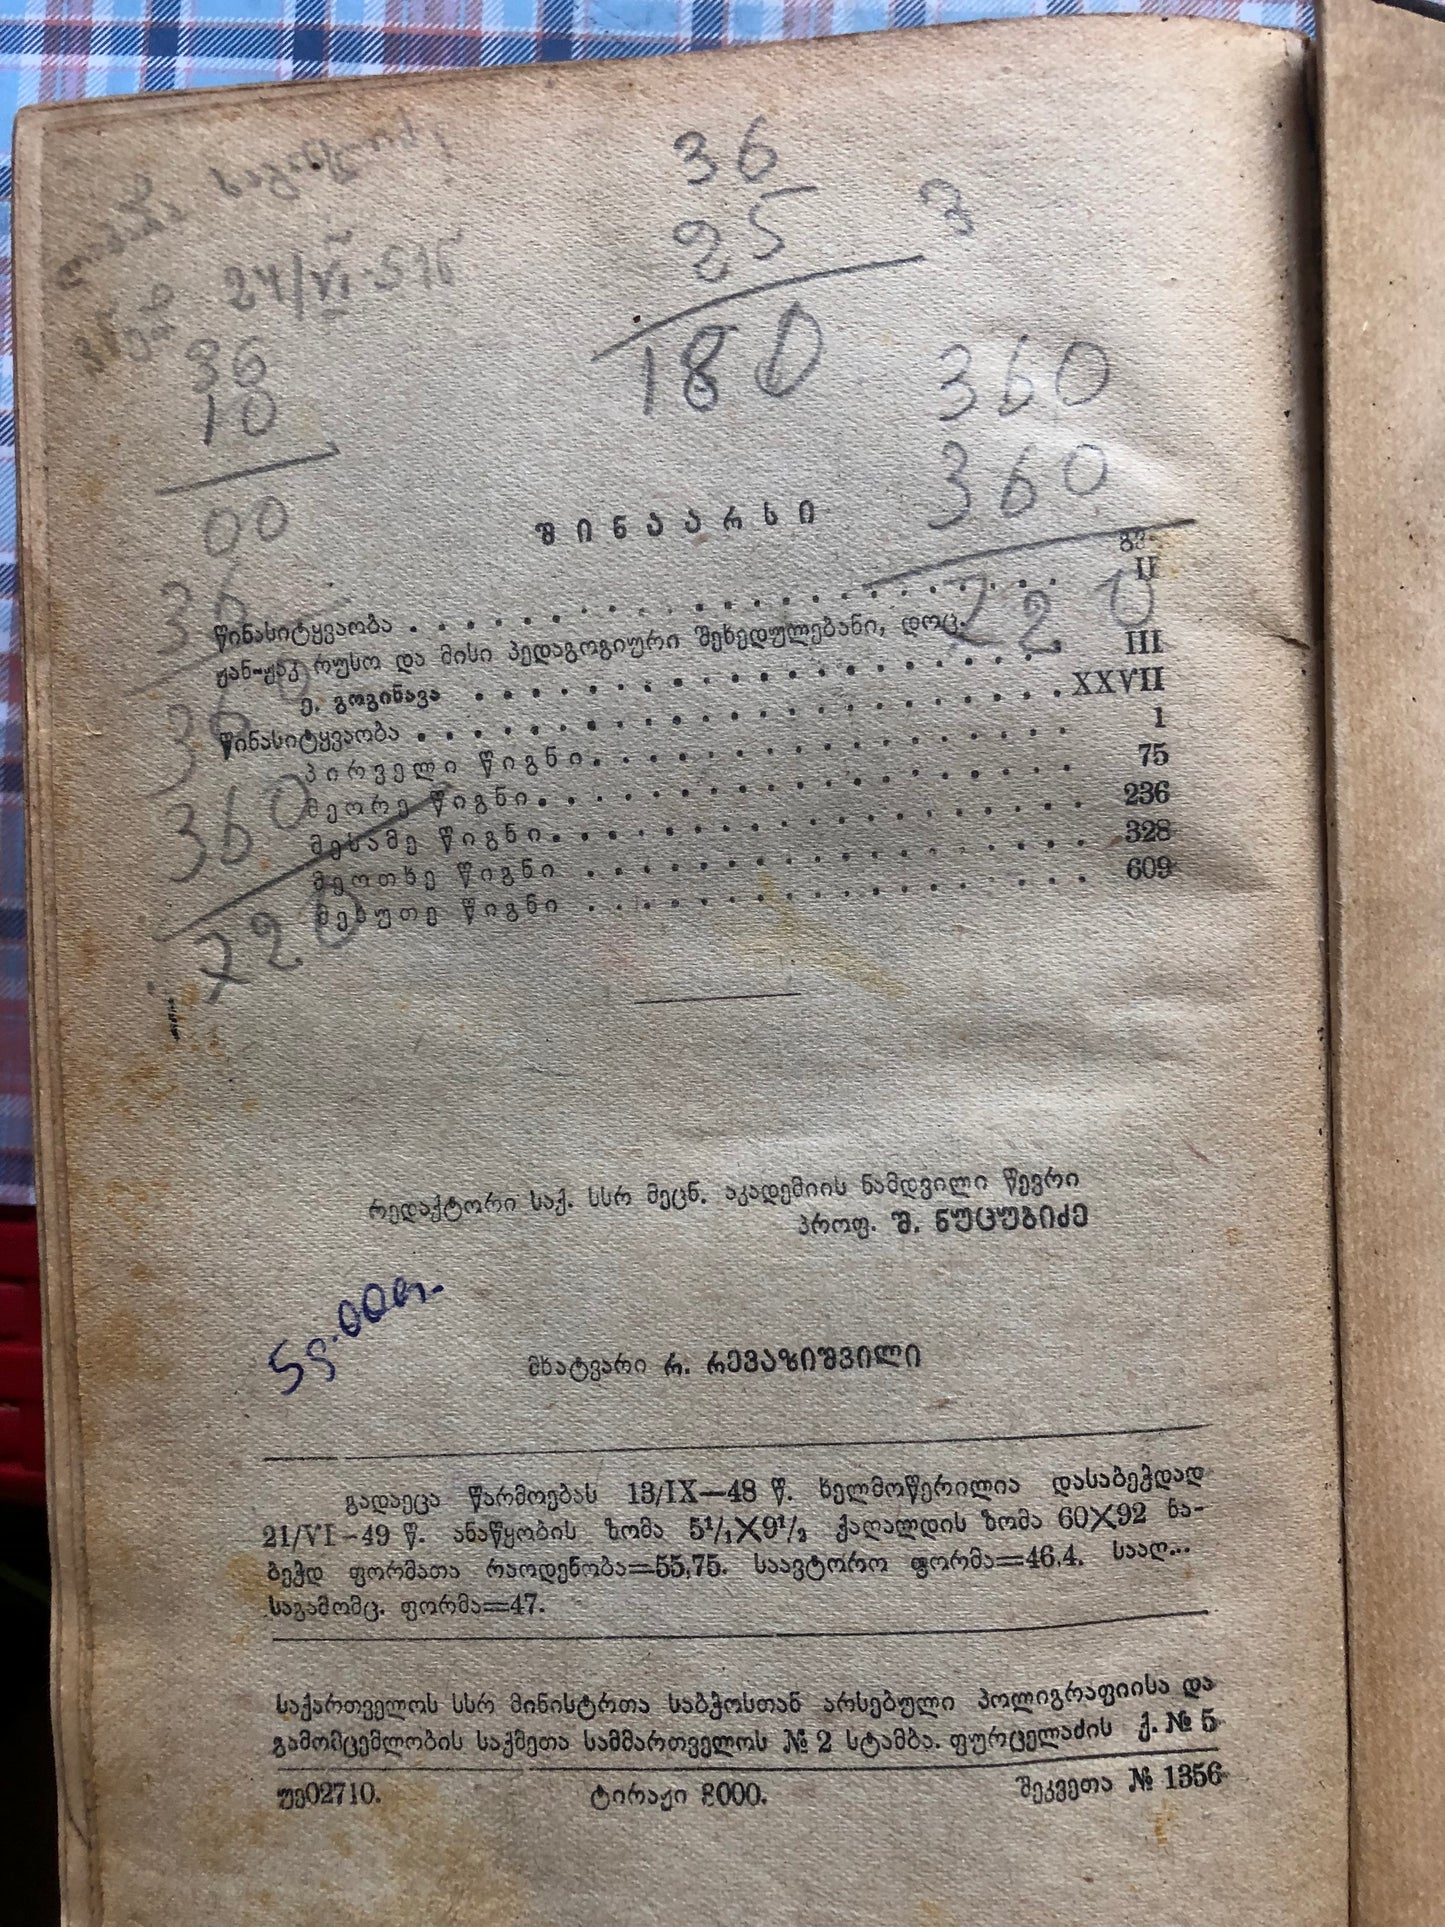 36
25
3
180
24/VI
36
10
00
360
360
720
შინაარსი
გვ.
წინასიტყვაობა . . . . . . . . . . . . . . . . . . . . . . . II
ჟან-ჟაკ რუსო და მისი პედაგოგიური შეხედულებანი, დოც.
ე. გოგინავა . . . . . . . . . . . . . . . . . . . . . III
წინასიტყვაობა . . . . . . . . . . . . . . . . . . . . . . . XXVII
პირველი წიგნი . . . . . . . . . . . . . . . . . 1
მეორე წიგნი . . . . . . . . . . . . . . . . . . . 75
მესამე წიგნი . . . . . . . . . . . . . . . . . . . 236
მეოთხე წიგნი . . . . . . . . . . . . . . . . . . . 328
მეხუთე წიგნი . . . . . . . . . . . . . . . . . . . 609
36
36
360
720
რედაქტორი საქ. სსრ მეცნ. აკადემიის ნამდვილი წევრი
პროფ. შ. ნუცუბიძე
მხატვარი რ. რევაზიშვილი
გადაეცა წარმოებას 13/IX—48 წ. ხელმოწერილია დასაბეჭდად
21/VI-49 წ. ანაწყობის ზომა 5¹/₁×9¹/₂ ქაღალდის ზომა 60×92 ნა-
ბეჭდ ფორმათა რაოდენობა=55,75. საავტორო ფორმა=46,4. სააღ...
საგამომც. ფორმა=47.
საქართველოს სსრ მინისტრთა საბჭოსთან არსებული პოლიგრაფიისა და
გამომცემლობის საქმეთა სამმართველოს № 2 სტამბა. ფურცელაძის ქ. № 5
უე02710. ტირაჟი 8000. შეკვეთა № 1356